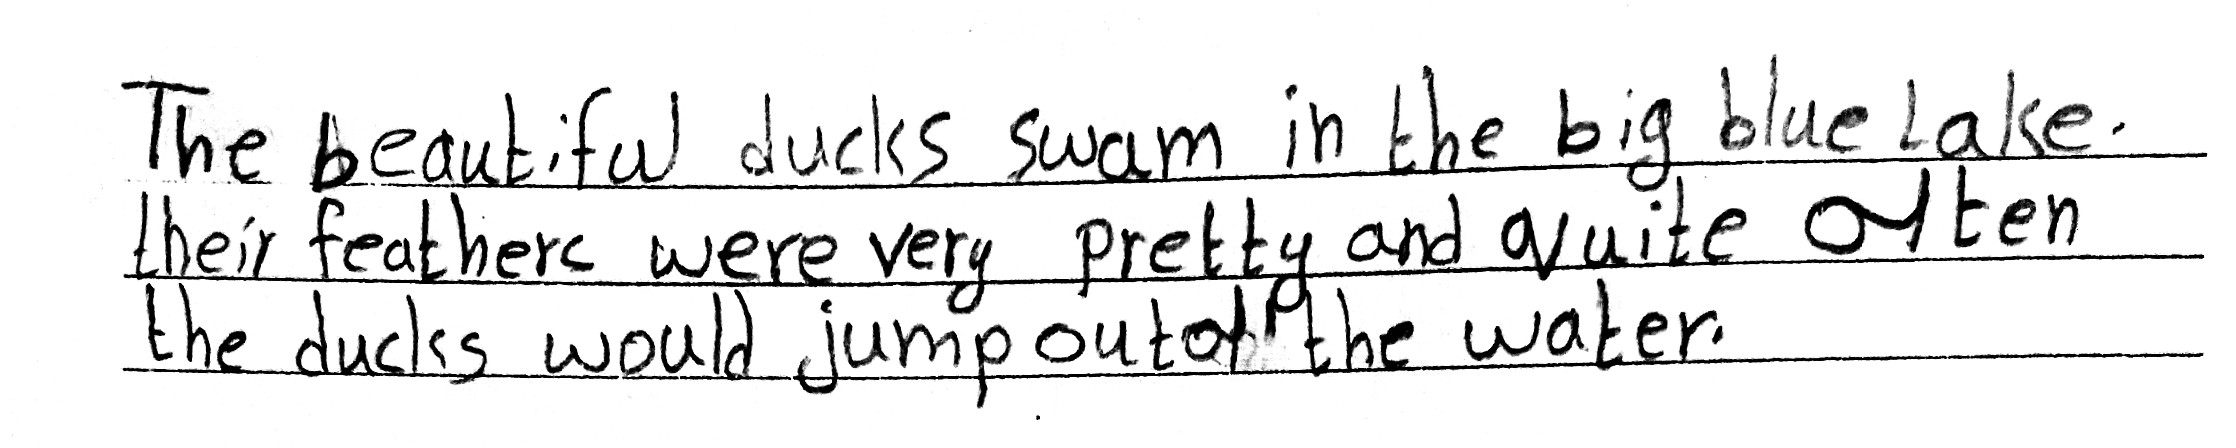 The beautiful ducks swam in the big blue Lake.
their feathers were very pretty and quite often
the ducks would jump out of the water.